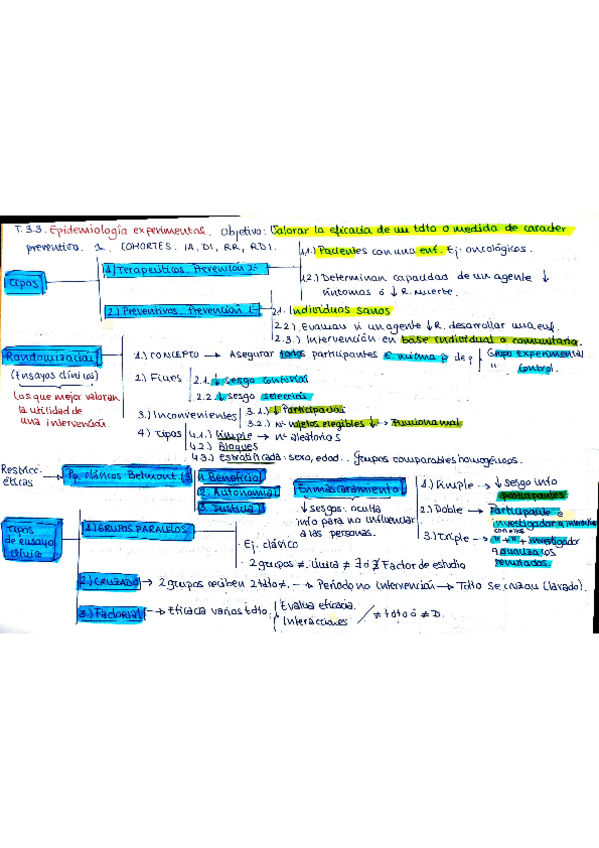 T. 3.3. Epidemiología experimental. Objetivo: Valorar la eficacia de un tdto o medida de carácter
preventivo. COHORTES. IA, DI, RR, RDI.
Tipos
1.) Terapeúticos. Prevención 2ª
1.1.) Pacientes con una enf. Ej. oncológicos.
1.2.) Determinan capacidad de un agente ↓
síntomas ó ↓ R. muerte.
2.) Preventivos. Prevención 1ª
2.1. Individuos sanos
2.2.) Evaluan si un agente ↓R. desarrollar una enf.
2.3.) Intervención en base individual o comunitaria.
Randomización
(Ensayos clínicos)
Los que mejor valoran
la utilidad de
una intervención
1.) CONCEPTO → Asegurar todos participantes misma p de
Grupo experimental
" control.
2.) Fines
2.1. ↓ sesgo confusión
2.2 ↓ sesgo selección
3.) Inconvenientes
3.1.) ↓ Participación
3.2.) nº sujetos elegibles ↓ → Funciona mal
4) Tipos
4.1.) Simple → nº aleatorios
4.2.) Bloques
4.3.) Estratificada: sexo, edad.. Grupos comparables homogéneos.
Restricc.
éticas
Pp. clásicos Belmont.
1. Beneficial
2. Autonomía
3. Justicia
Enmascaramiento
↓ sesgos: oculta
info para no influenciar
a las personas.
1.) Simple → ↓ sesgo info
participantes
2.) Doble → Participante e
investigador
3.) Triple → " + " + investigador
q analiza los
resultados.
Tipos
de ensayo
clínico
1.) GRUPOS PARALELOS
· Ej. clásico
· 2 grupos ≠. Única ≠ ∃ ó ∄ Factor de estudio
2.) CRUZADO → 2 grupos reciben 2 tdto ≠. → Periodo no intervención → Tdto se cruzan (lavado).
3.) Factorial → Eficacia varios tdto.
Evalua eficacia.
Interacciones
≠ tdto ó ≠ D.